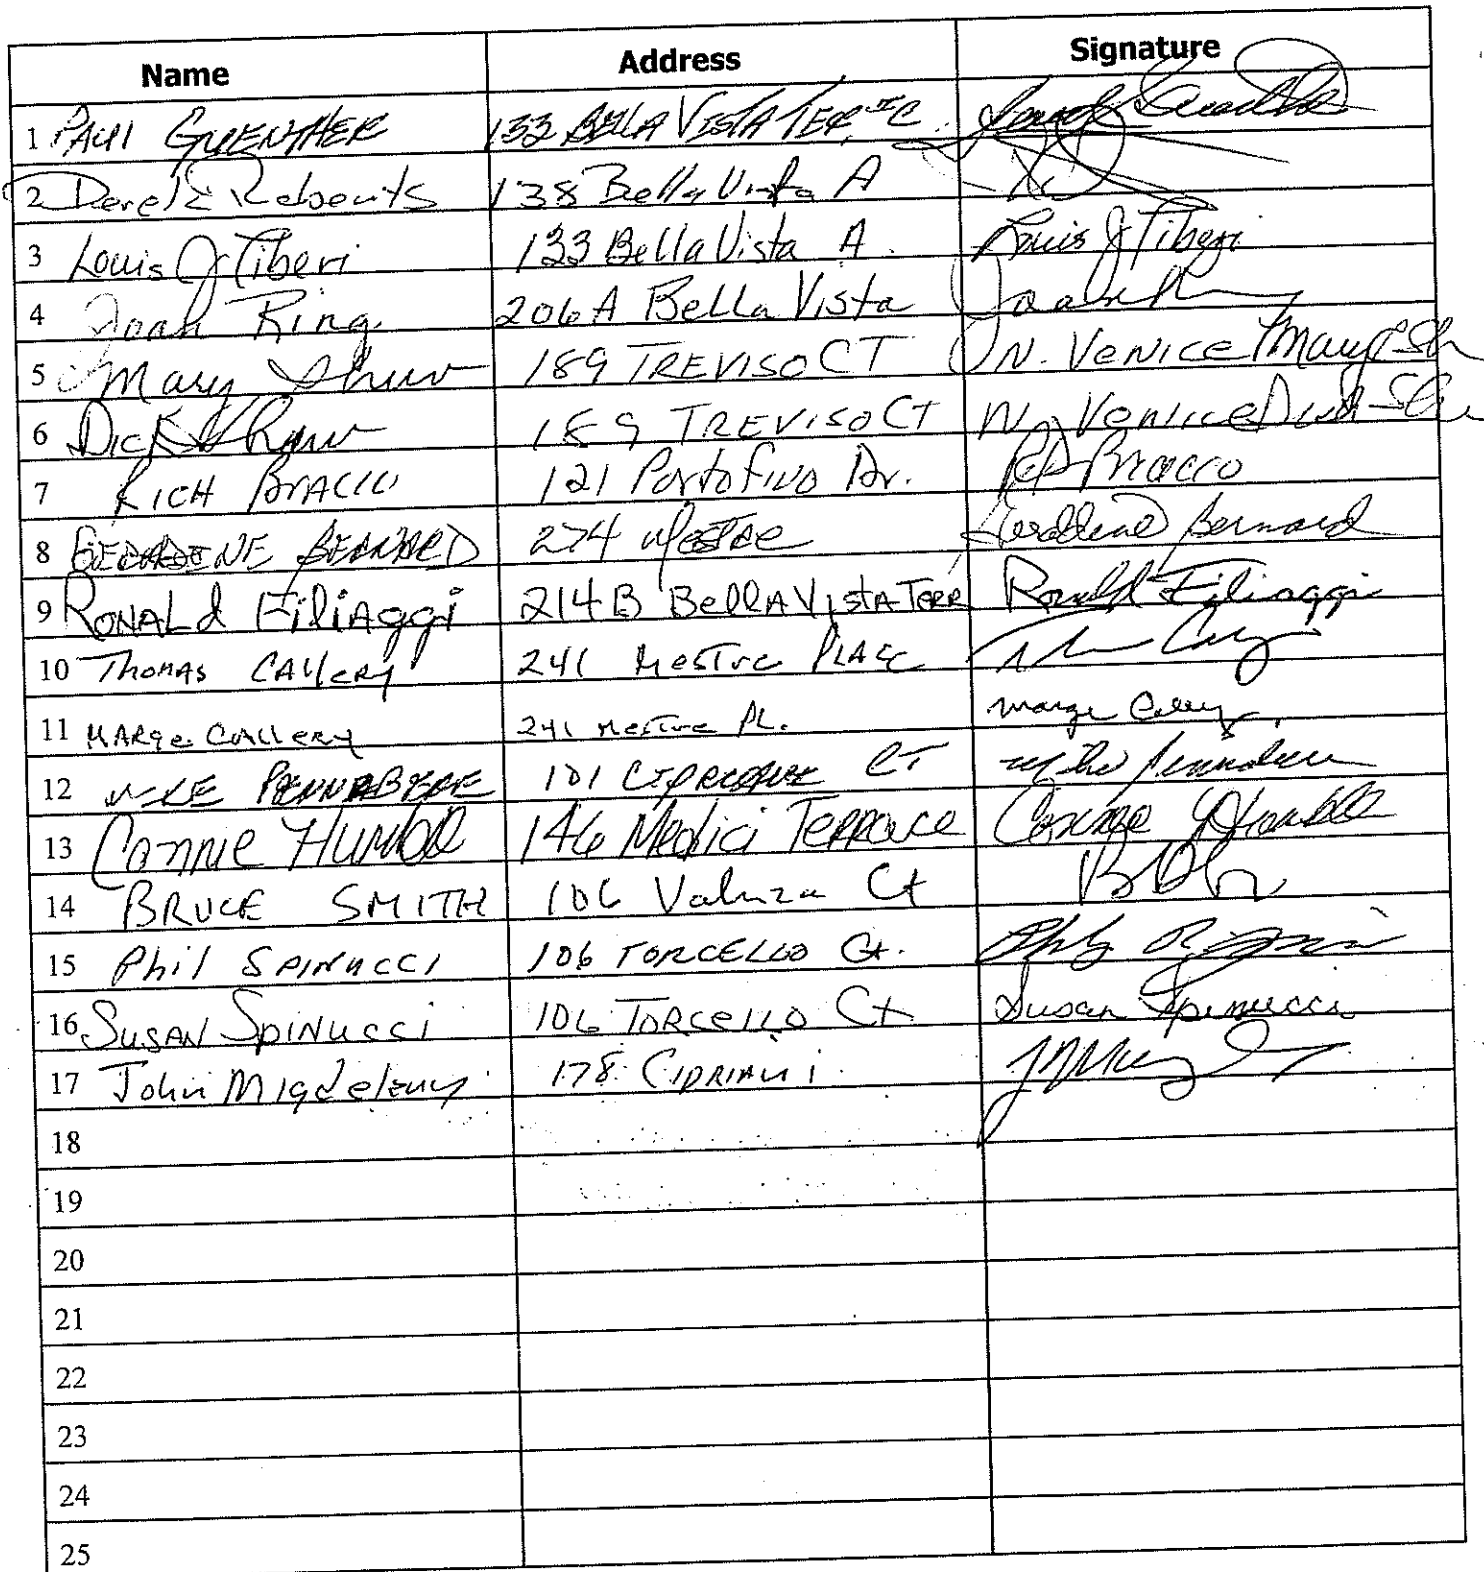 Name Address Signature
1 PAUL GUENTHER 133 BELLA VISTA TER, #C
2 Derek Roberts 138 Bella Vista A
3 Louis J Tiberi 133 Bella Vista A. Louis J Tiberi
4 Joan King 206 A Bella Vista
5 Mary Shaw 189 TREVISO CT N. VENICE Mary Sh
6 Dick Shaw 189 TREVISO CT N. Venice Dick Sha
7 RICH BRACCO 121 Portofino Dr. Bracco
8 GERALDINE BERNARD 274 Mestre Geraldine Bernard
9 RONALd FiliAggi 214 B BellA VistA Terr Ronald Filiaggi
10 ThomAs CAllery 241 Mestre PlAce
11 MARge CAllery 241 Mestre PL. Marge Callery
12 MIKE PENNABERE 101 CIPRIANI CT Mike
13 Connie Humble 146 Medici Terrace Connie Humble
14 BRUCE SMITH 106 Ct
15 Phil SPINUCCI 106 TORCELLO Ct.
16 SUSAN SPINUCCI 106 TORCELLO Ct Susan Spinucci
17 John 178 CIPRIANI
18
19
20
21
22
23
24
25